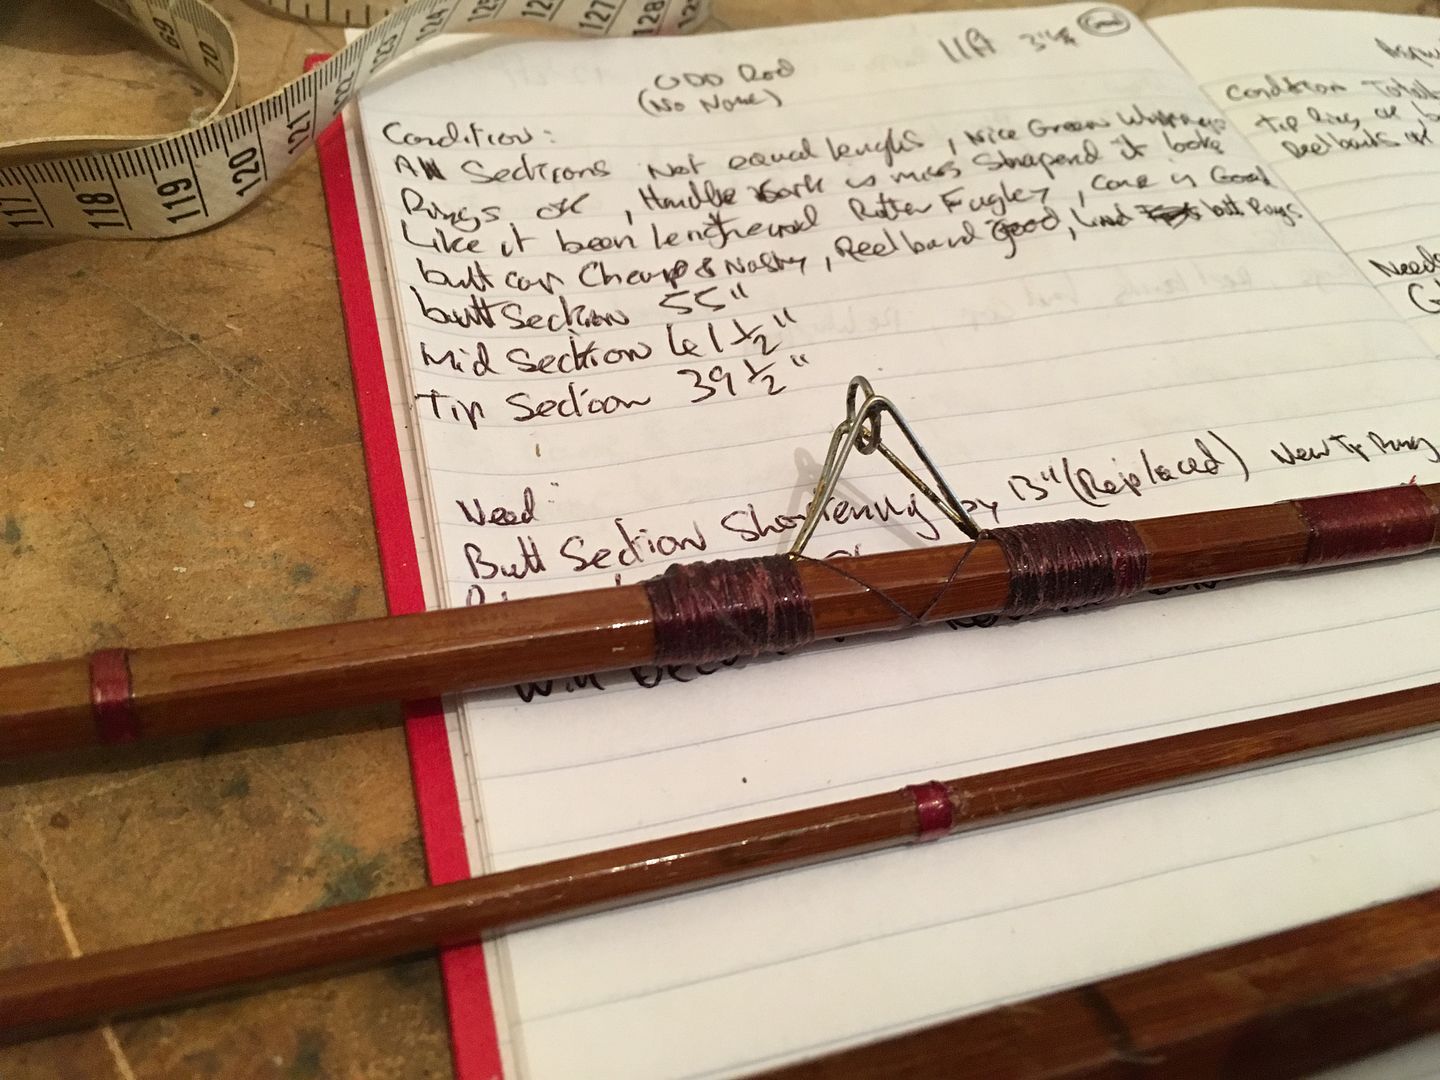 11ft
Good
ODD Rod
(No Name)
Condition:
All Sections Not equal lengths, Nice Green Whippings
Rings ok, Handle cork is miss Shapend it looks
Like it been lengthened Rather Fugley, Cane is Good
butt cap Cheap & Nasty, Reel band good, Lined butt Rings
butt Section 55"
Mid Section 41 1/2"
Tip Section 39 1/2"
Need
Butt Section Shortening by 13" (Replaced) New Tip Ring
Will
Condition
Tip Ring ok,
Reel bands ok
Needs
117 118 119 120 121 122 123 124 125 126 127 128
69 70